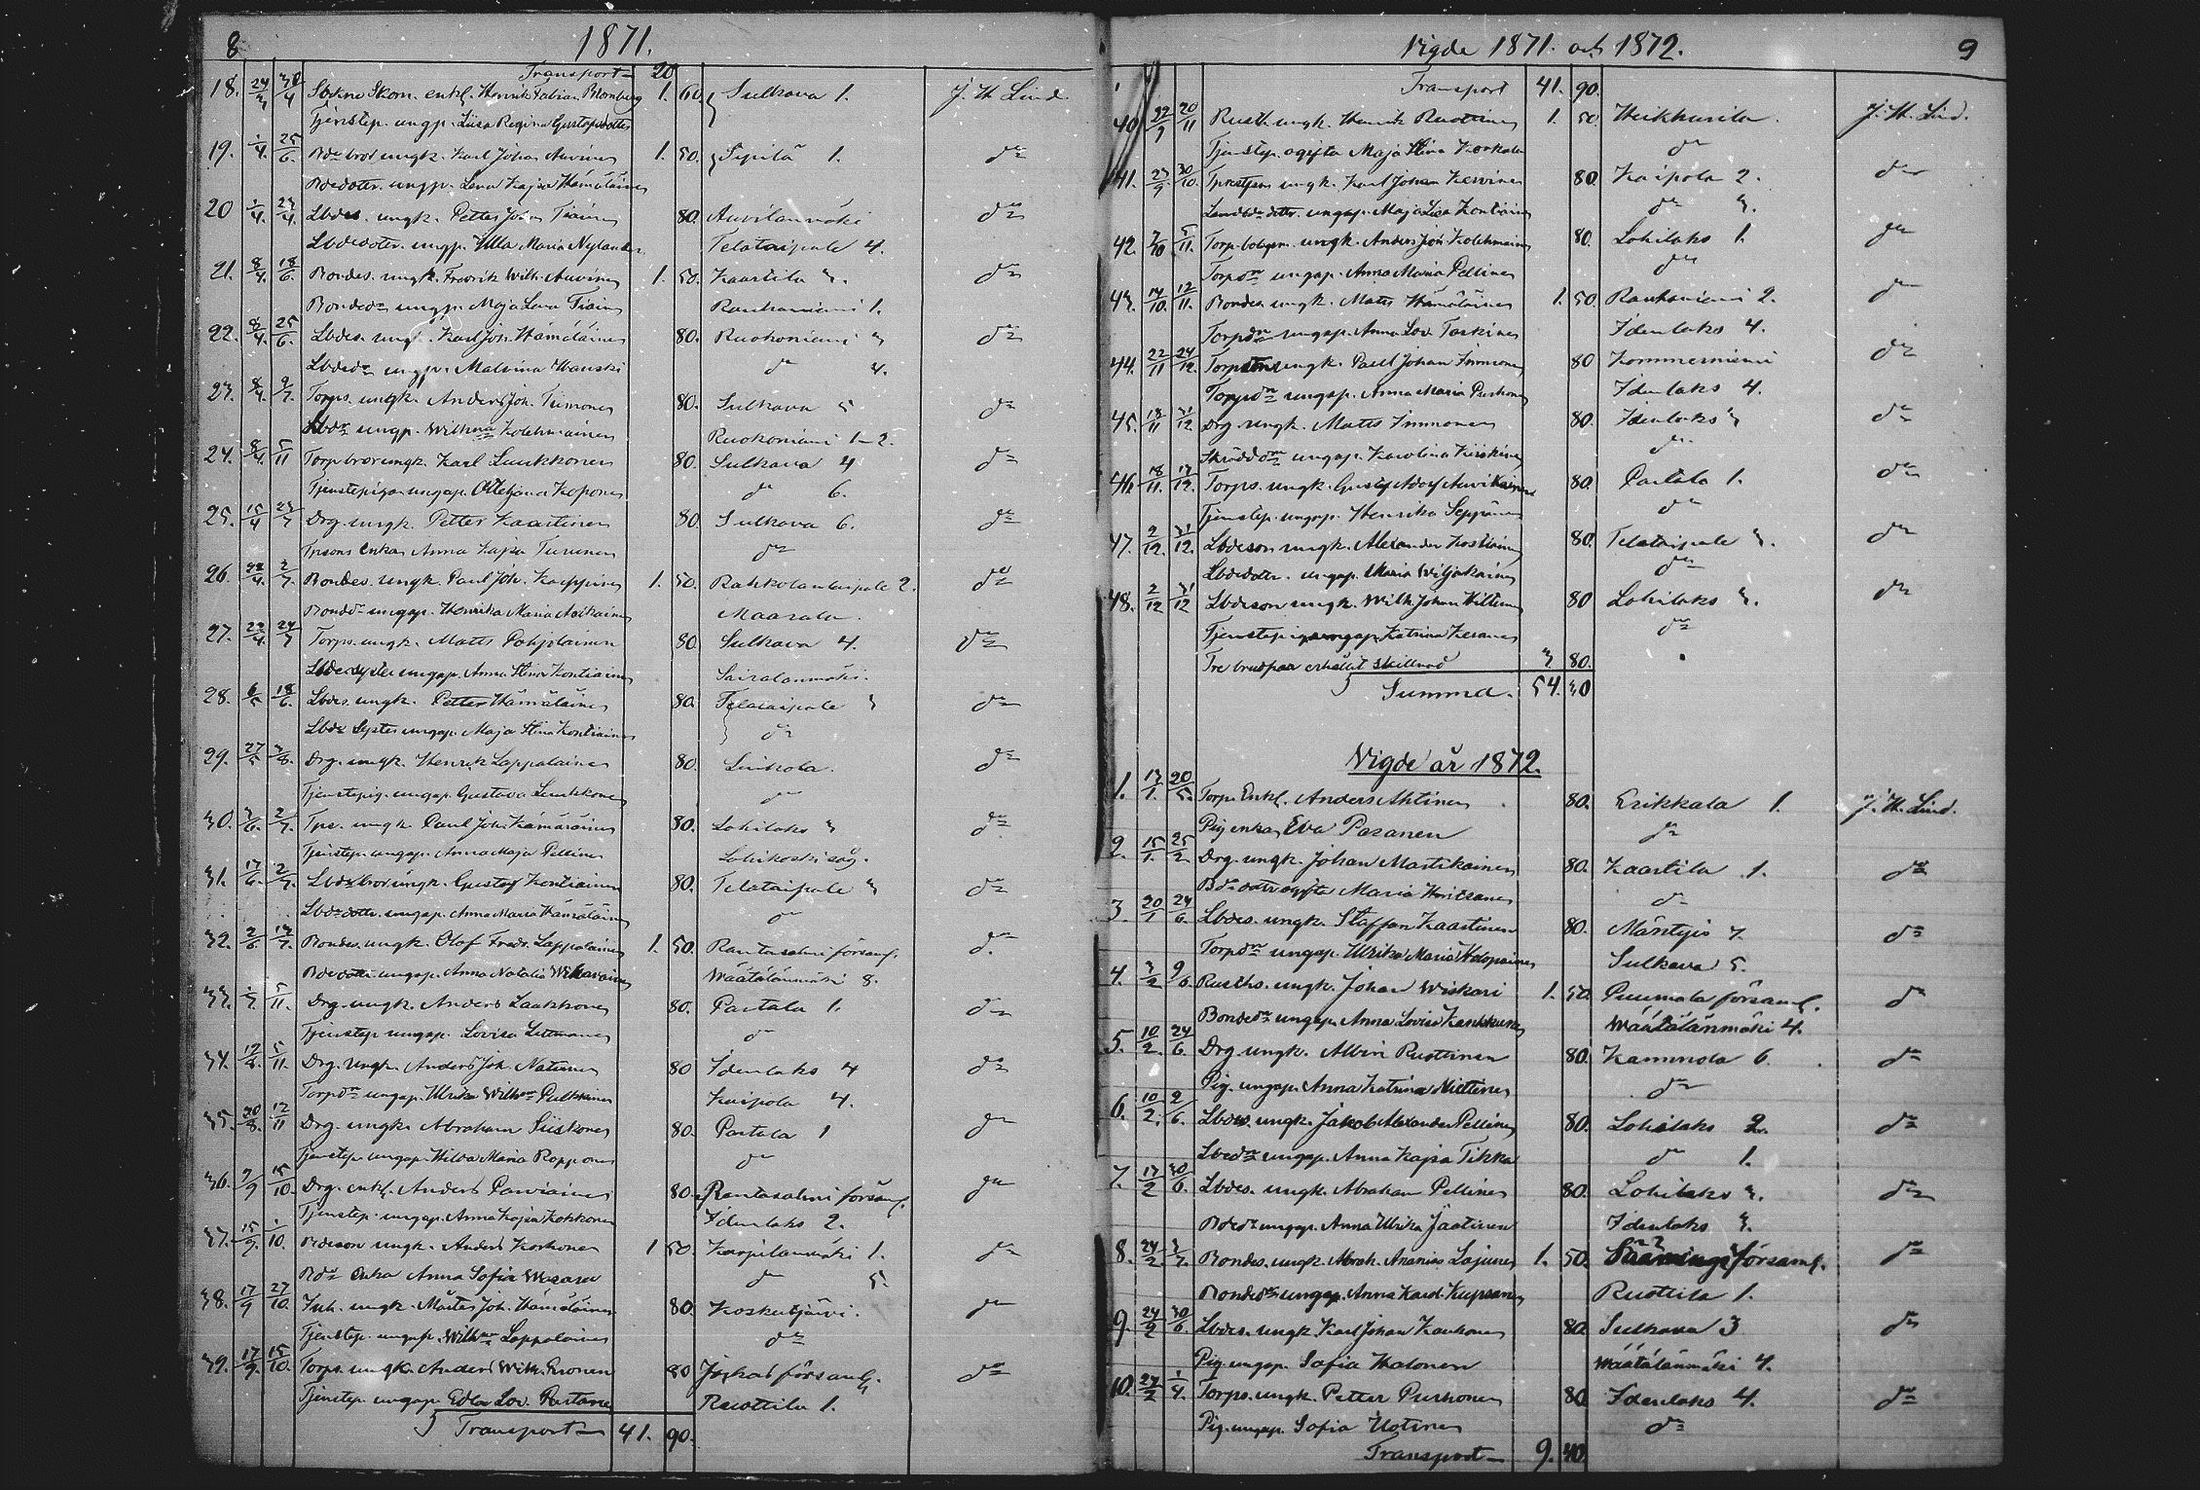 8 1871.
Transport 20
18. 24/3 30/4 Sockne Skom. enkl. Henrik Fabian Blomberg 1. 60. Sulkava 1. J. H. Lind.
Tjenstep. ungp. Lisa Regina Gustafsdotter
19. 1/4. 25/6. Bde bror ungk. Karl Johan Auvinen 1. 50. Sipilä 1. do
Bdedotr. ungp. Lena Kajsa Hämäläinen
20 1/4. 23/4. Lbdes. ungk. Petter Johan Tiainen 80. Auvilanmäki do
Lbdedotr. ungp. Ulla Maria Nylander Telataipale 4.
21. 8/4. 18/6. Bondes. ungk. Fredrik Wilh. Auvinen 1. 50. Kaartila 3. do
Bondedr ungp. Maja Lena Tiainen Rauhaniemi 1.
22. 8/4. 25/6. Lbdes. ungk. Karl Joh. Hämäläinen 80. Ruokoniemi 3 do
Lbdedr ungp. Malvina Hanski do 4.
23. 8/4. 9/7. Torps. ungk. Anders Joh. Timonen 80. Sulkava 5 do
Lbdr ungp. Wilhma Kolehmainen Ruokoniemi 1-2.
24. 8/4. 5/11 Torp bror ungk. Karl Luukkonen 80. Sulkava 4 do
Tjenstepigan ungp. Ottiljana Koponen do 6.
25. 15/4 23/7 Drg. ungk. Petter Kaartinen 80. Sulkava 6. do
Enka Anna Kajsa Turunen do
26. 22/4. 2/7. Bondes. ungk. Paul Joh. Kaippinen 1. 50. Rahkolantaipale 2. do
Bonddr ungp. Henrika Maria Asikainen Maarala.
27. 22/4. 24/7 Torps. ungk. Matts Pohjolainen 80. Sulkava 4. do
Lbdesyster ungp. Anna Stina Kontiainen Sairalanmäki.
28. 6/5 18/6. Lbdes. ungk. Petter Hämäläinen 80. Telataipale 3 do
Lbdr Syster ungp. Maja Stina Kontiainen do
29. 27/5 Drg. ungk. Henrik Lappalainen 80. Linkola. do
Tjenstepig. ungp. Gustava Luukkonen do
30. 3/6. 2/7. Tps. ungk. Paul Joh. Kämäräinen 80. Lohilaks 3 do
Tjenstep. ungp. Anna Maja Pellinen Lohikoski såg.
31. 17/6. 2/7. Lbde bror ungk. Gustaf Kontiainen 80. Telataipale 3 do
Lbdedottr. ungp. Anna Maria Hämäläinen do
32. 2/6 Bondes. ungk. Olof Fredr. Lappalainen 1. 50. Rantasalmi församl. do
Bdedottr ungp. Anna Natalia Wäätälänmäki 8.
33. 5/11. Drg. ungk. Anders Laukkonen 80. Partala 1. do
Tjenstep ungp. Lovisa Littmanen do
34. 5/11. Drg. ungk. Anders Joh. Natunen 80 Idenlaks 4 do
Torpdr ungp. Ulrika Wilhma Pulkkinen Kaipola 4.
35. 20/8. 12/11 Drg. ungk. Abraham Siiskonen 80. Partala 1 do
Tjenstep. ungp. Hilda Maria Ropponen do
36. 15/10. Drg. enkl. Anders Parviainen 80. Rantasalmi församl. do
Tjenstep. ungp. Anna Kajsa Kokkonen Idenlaks 2.
37. 15/9. 1/10. Bdeson ungk. Anders Korhonen 1 50. Karpilanmäki 1. do
Bdr Enka Anna Sofia do 5.
38. 17/9 27/10. Inh. ungk. Mårten Joh. Hämäläinen 80. Koskutjärvi. do
Tjenstep. ungp. Wilhma Lappalainen do
39. 17/9. 15/10. Torps. ungk. Anders Wilh. 80 Jokas församl. do
Tjenstep ungp. Edla Lov. Partanen Ruottila 1.
Transport 41. 90.
Vigde 1871. och 1872. 9
Transport 41. 90.
40 22/9 20/11 Rusth. ungk. Henrik Ruottinen 1. 50 Heikkurila. J. H. Lind.
Tjenstep. ogifta Maja Stina Korkala do
41. 23/9. 30/10. ungk. Karl Johan Kervinen 80. Kaipola 2. do
Landbde dottr. ungp. Maja Lisa Kontiainen do 3.
42. 7/10 5/11. ungk. Anders Joh. Kolehmainen 80. Lohilaks 1. do
Torpdr ungp. Anna Maria Pellinen do
43. 14/10. 12/11. Bondes. ungk. Matts Hämäläinen 1. 50 Rauhaniemi 2. do
Torpdr ungp. Anna Lov. Taskinen Idenlaks 4.
44. 22/11 24/12. Torp ungk. Paul Johan Immonen 80 Kommerniemi do
Torpdr ungp. Anna Maria Purhonen Idenlaks 4.
45. 18/11 31/12. Drg. ungk. Matts Immonen 80. Idenlaks 3 do
Skräddr ungp. Karolina do
46. 18/11. 17/12. Torps. ungk. Gustaf Adolf 80. Partala 1. do
Tjenstep. ungp. Henrika Seppänen do
47. 2/12. 31/12. Lbdeson ungk. Alexander Kostiainen 80. Telataipale 3. do
Lbdedottr. ungp. Maria Wiljakainen do
48. 2/12 31/12 Lbdeson ungk. Wilh. Johan Hiltunen 80 Lohilaks 3. do
Tjenstepigan ungp. Katrina Kesanen do
Tre brudpar erhållit skillnad 3 80.
Summa. 54. 30
Vigde år 1872.
1. 13/1. 20/5. Torp. Enkl. Anders Ahtinen 80. Erikkala 1. J. H. Lind.
Pig enka Eva Pasanen do
2. 15/1. 25/2. Drg. ungk. Johan Martikainen 80. Kaartila 1. do
Bde dottr ogifta Maria do
3. 20/1 24/6. Lbdes. ungk. Staffan Kaartinen 80. Mäntyis 7. do
Torpdr ungp. Ulrika Maria Holopainen Sulkava 5.
4. 3/2 9/6. Rusths. ungk. Johan Wiskari 1. 50. Puumala församl. do
Bondedr ungp. Anna Lovisa Kankkunen Wäätälänmäki 4.
5. 10/2. 24/6. Drg. ungk. Albin Ruottinen 80. Kammola 6. do
Pig. ungp. Anna Katrina Miettinen do
6. 10/2. 2/6. Lbdes. ungk. Jakob Alexander Pellinen 80. Lohilaks 2. do
Lbedr ungp. Anna Kajsa Tikka do 1.
7. 17/2 30/6. Lbdes. ungk. Abraham Pellinen 80. Lohilaks 3. do
Bdedr ungp. Anna Ulrika Jäätinen Idenlaks 3.
8. 24/2. 3/7. Bondes. ungk. Abrah. Ananias Lajunen 1. 50. Säämings församl. do
Bondedr ungp. Anna Karol. Kupiainen Ruottila 1.
9. 24/2 30/6. Lbdes. ungk. Karl Johan Kauhanen 80. Sulkava 3 do
Pig. ungp. Sofia Halonen Wäätälänmäki 4.
10. 24/2 1/4. Torps. ungk. Petter Purhonen 80. Idenlaks 4. do
Pig. ungp. Sofia Uotinen do
Transport 9. 40.